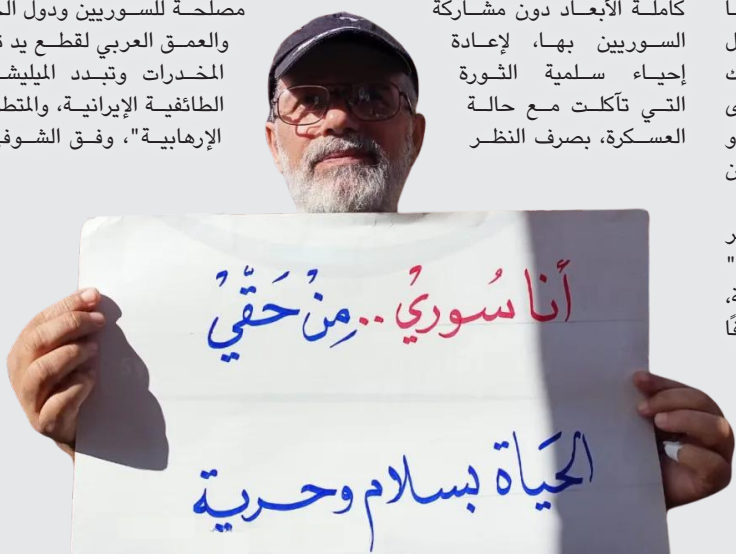 كاملة الأبعاد دون مشاركة
السوريين بها، لإعادة
إحياء سلمية الثورة
التي تآكلت مع حالة
العسكرة، بصرف النظر
مصلحة للسوريين ودول
والعمق العربي لقطع يد
المخدرات وتبدد
الطائفية الإيرانية،
الإرهابية"، وفق
أنا سُوريْ .. مِنْ حَقّيْ
الحَيَاة بسلام وحرية